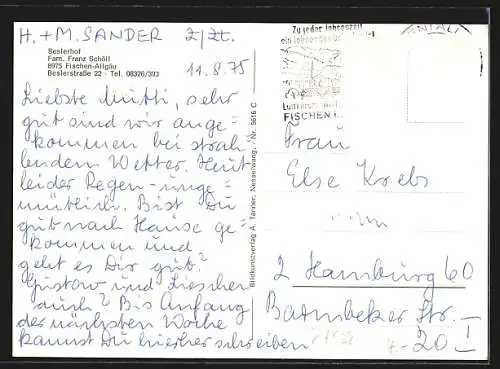 H. + M. SANDER z/Zt.
Beslerhof
Fam. Franz Schöll
8975 Fischen-Allgäu
Beslerstraße 22 - Tel. 08326/393
11.8.75
Liebste Mutti, sehr
gut sind wir ange=
kommen bei strah=
lendem Wetter. Heut
leider Regen - unge=
mütlich. Bist Du
gut nach Hause ge=
kommen und
geht es Dir gut?
Gustav und Lieschen
auch? Bis Anfang
der nächsten Woche
kannst Du hierher schreiben
Briefkunstverlag A. Tanner, Nesselwang, - Nr. 5616 C
Zu jeder Jahreszeit
ein lohnendes
FISCHEN
Frau
Else Krebs
2 Hamburg 60
Barmbeker Str. -
- 20 I